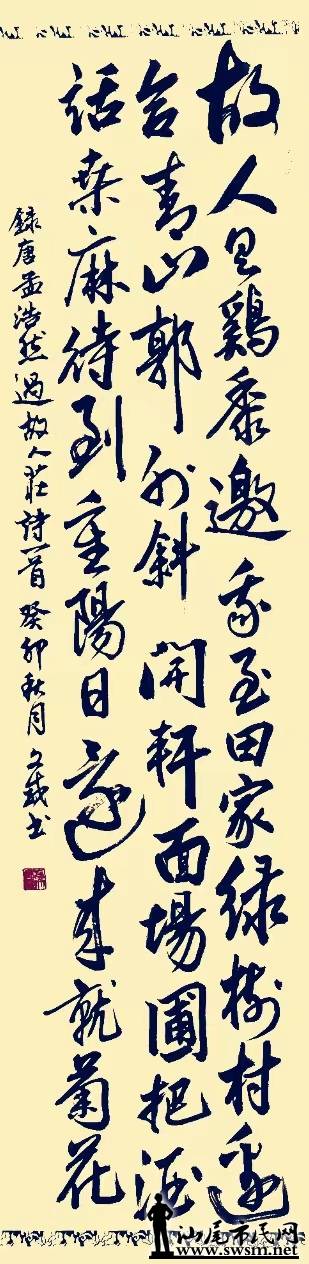 故人具鷄黍邀我至田家绿樹村邊
合青山郭外斜開軒面場圃把酒
話桑麻待到重陽日還来就菊花
録唐孟浩然過故人莊詩一首癸卯秋月文越书
汕尾市民网
www.swsm.net